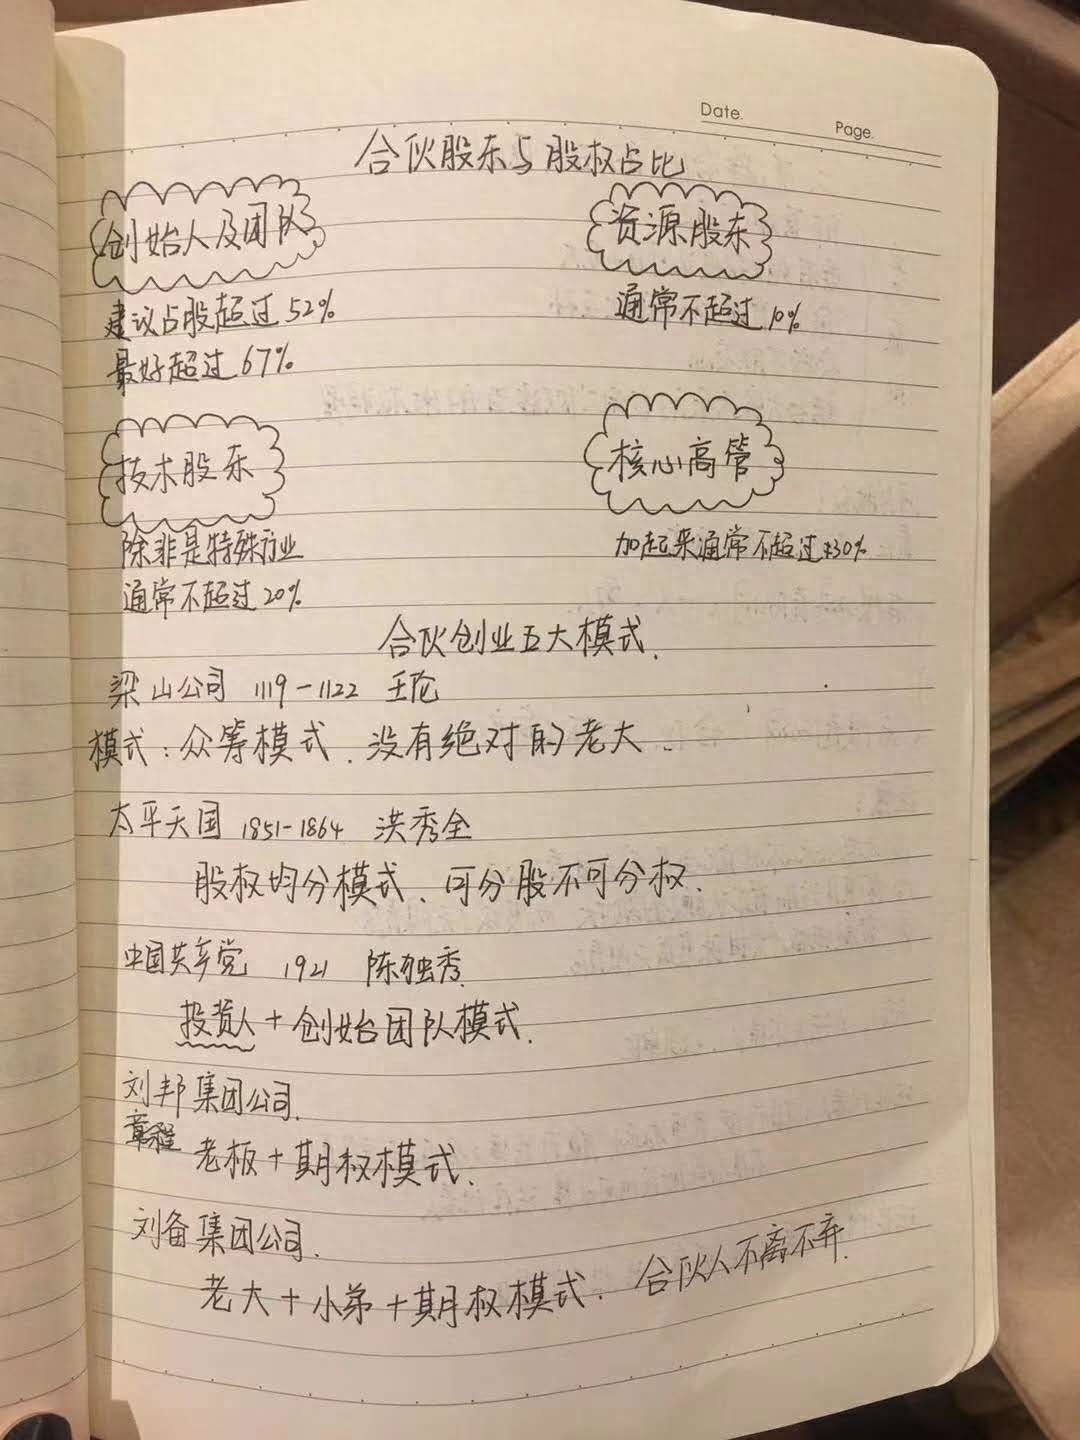 Date.
Page.
合伙股东与股权占比
创始人及团队
建议占股超过52%
最好超过67%
资源股东
通常不超过10%
技术股东
除非是特殊行业
通常不超过20%
核心高管
加起来通常不超过30%
合伙创业五大模式.
梁山公司 1119-1122 王伦
模式:众筹模式.没有绝对的老大.
太平天国 1851-1864 洪秀全
股权均分模式.可分股不可分权.
中国共产党 1921 陈独秀.
投资人+创始团队模式.
刘邦集团公司.
章程 老板+期权模式.
刘备集团公司.
老大+小弟+期权模式. 合伙人不离不弃.